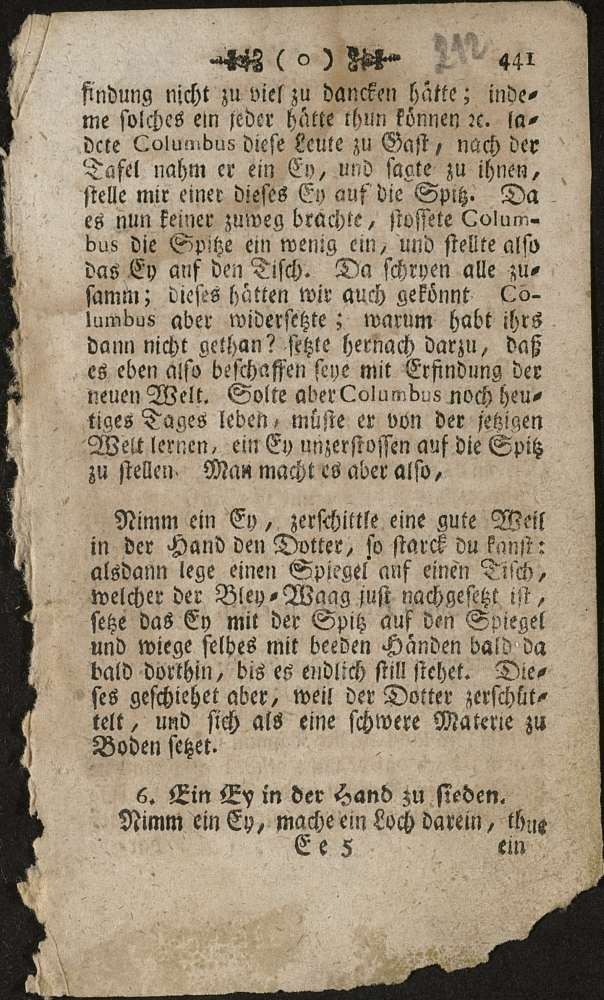 ( o ) 212 441
findung nicht zu viel zu dancken hätte; inde-
me solches ein jeder hätte thun können ꝛc. la-
dete Columbus diese Leute zu Gast, nach der
Tafel nahm er ein Ey, und sagte zu ihnen,
stelle mir einer dieses Ey auf die Spitz. Da
es nun keiner zuweg brachte, stossete Colum-
bus die Spitze ein wenig ein, und stellte also
das Ey auf den Tisch. Da schryen alle zu-
samm; dieses hätten wir auch gekönnt Co-
lumbus aber widersetzte; warum habt ihrs
dann nicht gethan? setzte hernach darzu, daß
es eben also beschaffen seye mit Erfindung der
neuen Welt. Solte aber Columbus noch heu-
tiges Tages leben, müste er von der jetzigen
Welt lernen, ein Ey unzerstossen auf die Spitz
zu stellen. Man macht es aber also,
Nimm ein Ey, zerschittle eine gute Weil
in der Hand den Dotter, so starck du kanst:
alsdann lege einen Spiegel auf einen Tisch,
welcher der Bley-Waag just nachgesetzt ist,
setze das Ey mit der Spitz auf den Spiegel
und wiege selbes mit beeden Händen bald da
bald dorthin, bis es endlich still stehet. Die-
ses geschiehet aber, weil der Dotter zerschüt-
telt, und sich als eine schwere Materie zu
Boden setzet.
6. Ein Ey in der Hand zu sieden.
Nimm ein Ey, mache ein Loch darein, thue
E e 5 ein